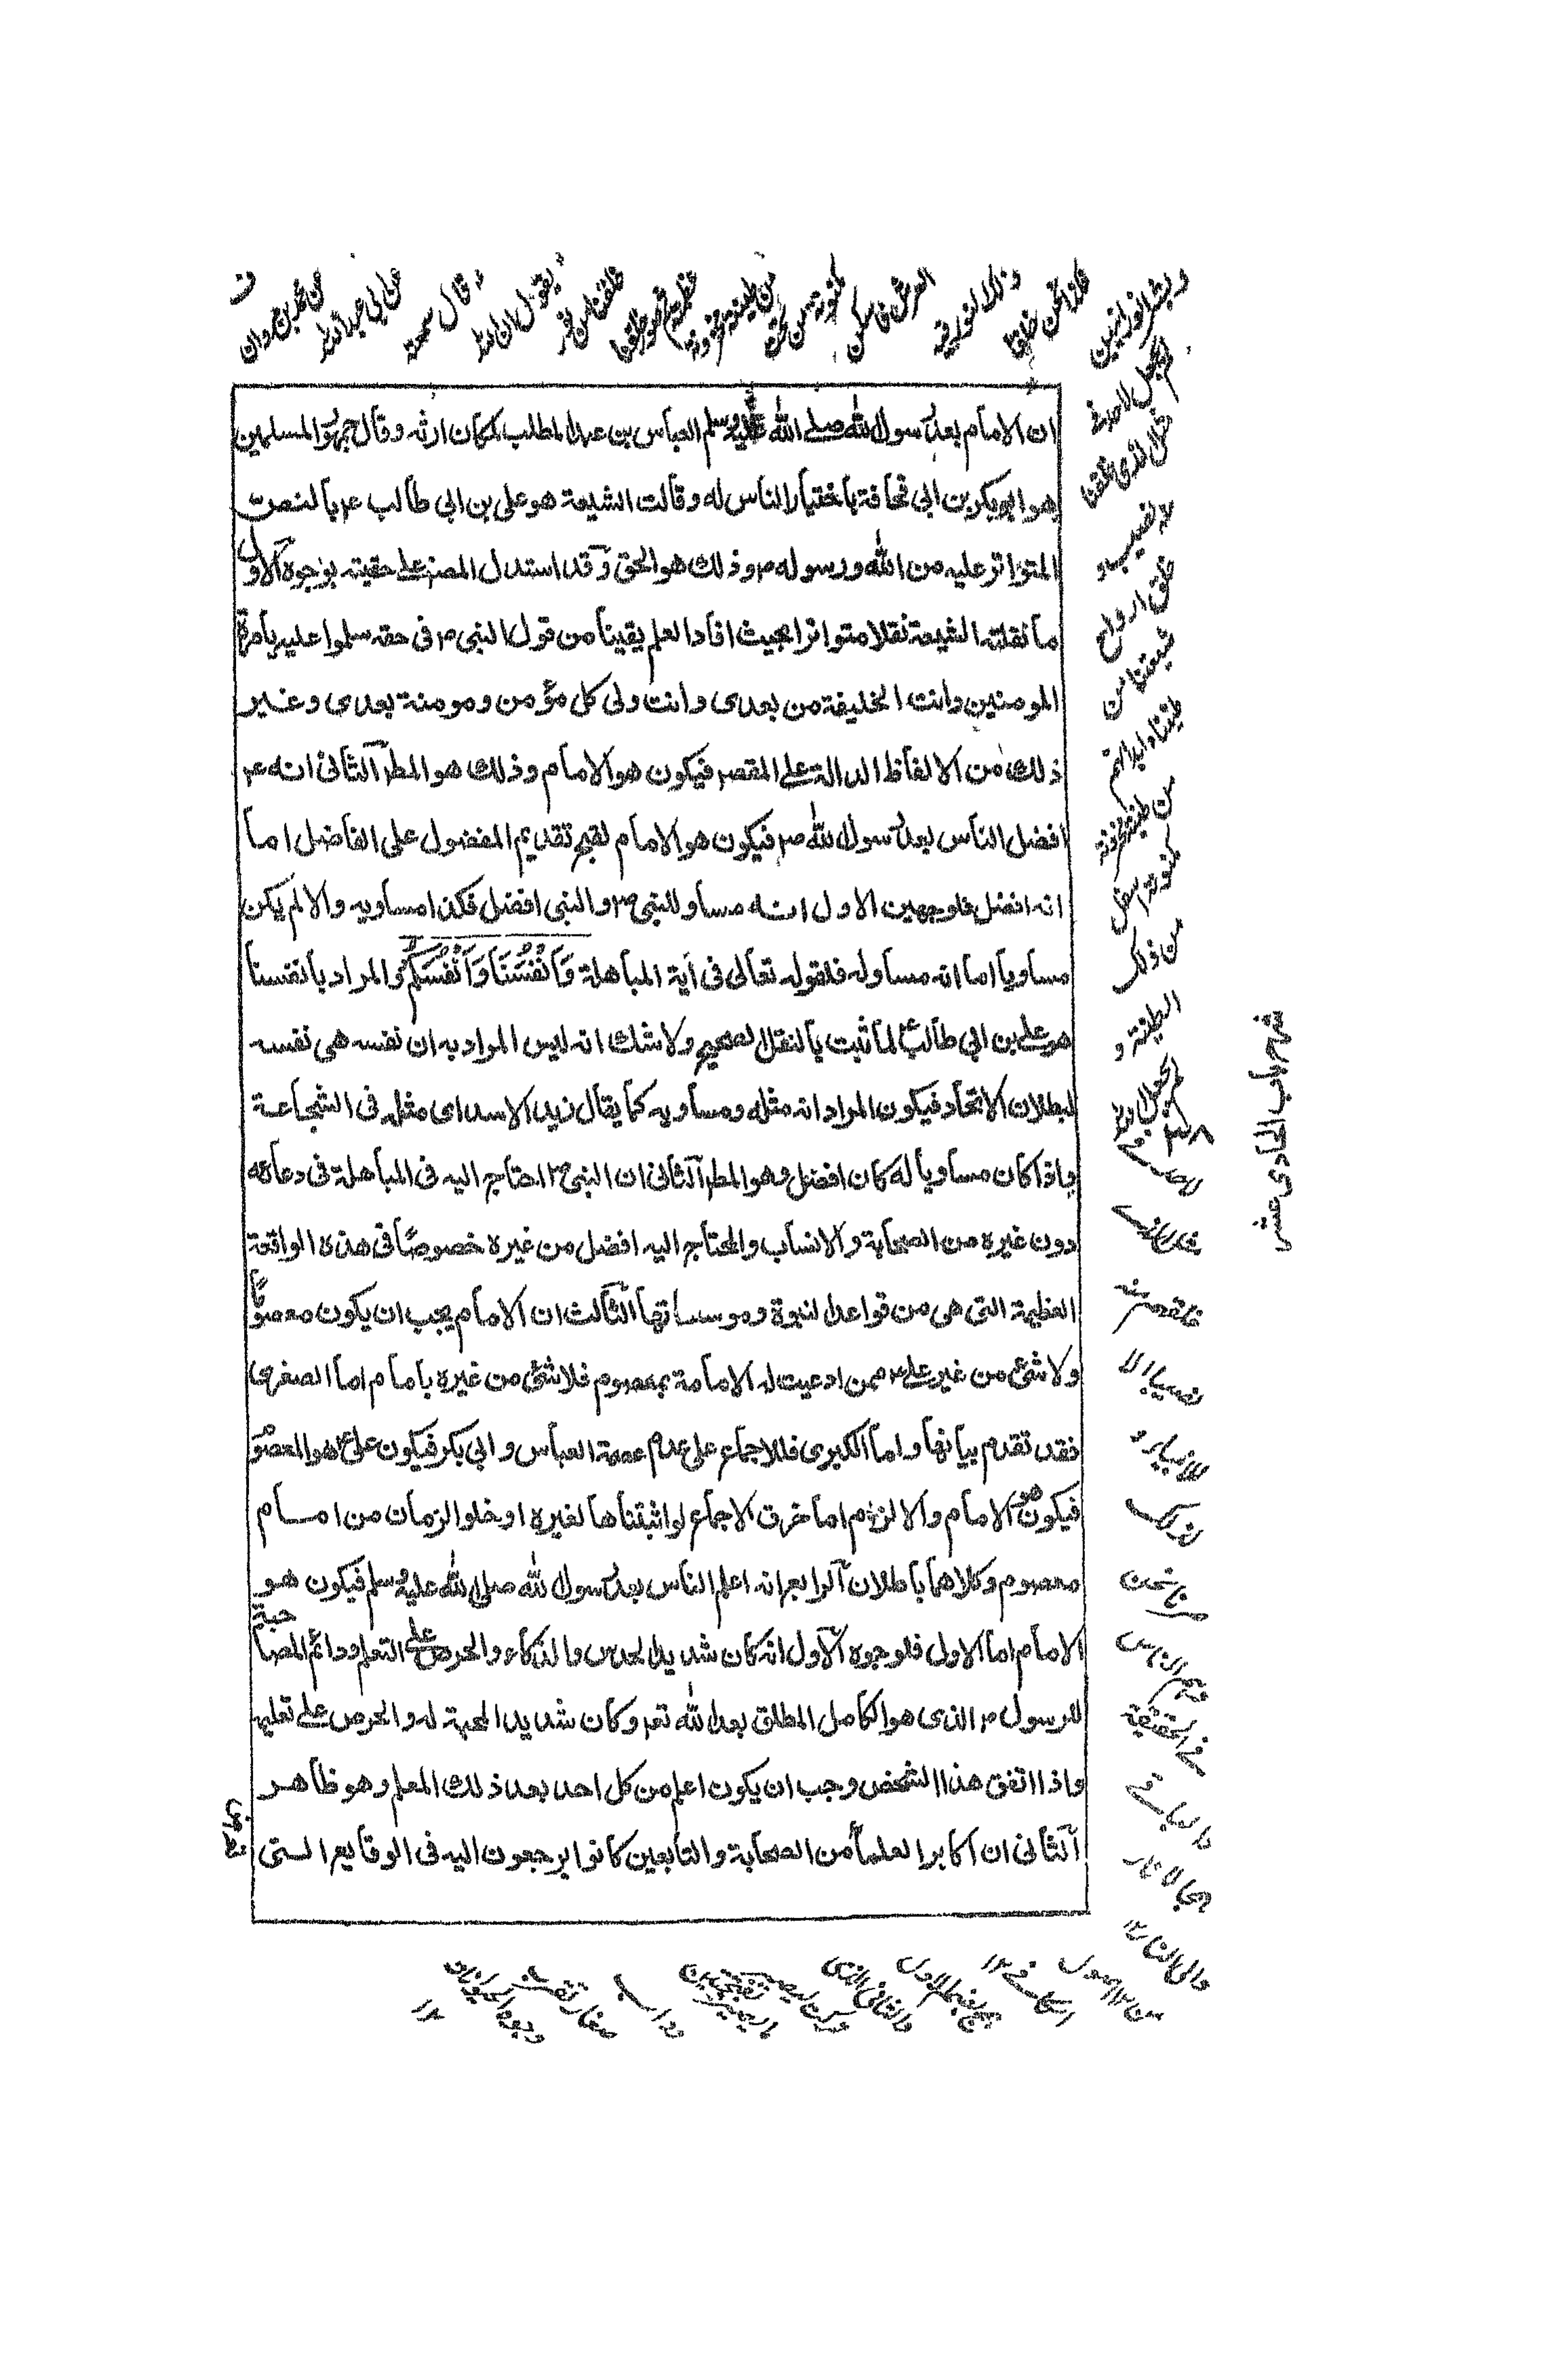 ان الامام بعد رسول الله صلى الله عليه وسلم العباس بن عبد المطلب لمكان ارثه وقال جمهور المسلمين
هو ابو بكر بن ابي قحافة باختيار الناس له وقالت الشيعة هو علي بن ابي طالب ع بالنص
المتواتر عليه من الله ورسوله ص وذلك هو الحق وقد استدل المصنف على حقيته بوجوه الاول
ما نقلته الشيعة نقلا متواترا بحيث افاد العلم يقينا من قول النبي ص في حقه سلموا عليه بامرة
المومنين وانت الخليفة من بعدى وانت ولى كل مؤمن ومومنة بعدى وغير
ذلك من الالفاظ الدالة على المقصو فيكون هو الامام وذلك هو المط الثانى انه ع
افضل الناس بعد رسول الله ص فيكون هو الامام لقبح تقديم المفضول على الفاضل اما
انه افضل فلوجهين الاول انه مساو للنبى ص والنبى افضل فكذا مساويه والا لم يكن
مساويا اما انه مساو له فلقوله تعالى فى آية المباهلة وَاَنْفُسَنَا وَاَنْفُسَكُمْ والمراد بانفسنا
هو على بن ابي طالب ع لما ثبت بالنقل الصحيح ولا شك انه ليس المراد به ان نفسه هى نفسه
لبطلان الاتحاد فيكون المراد انه مثله ومساويه كما يقال زيد الاسد اى مثله فى الشجاعة
واذا كان مساويا له كان افضل وهو المط الثانى ان النبى ص احتاج اليه فى المباهلة فى دعائه
دون غيره من الصحابة والانساب والمحتاج اليه افضل من غيره خصوصًا فى هذه الواقعة
العظيمة التى هى من قواعد النبوة وموسساتها الثالث ان الامام يجب ان يكون معصومًا
ولا شئ من غير على ع ممن ادعيت له الامامة بمعصوم فلا شئ من غيره بامام اما الصغرى
فقد تقدم بيانها واما الكبرى فللاجماع على عدم عصمة العباس وابي بكر فيكون على ع هو المعصوم
فيكون هو الامام والا لزم اما خرق الاجماع لو اثبتناها لغيره او خلو الزمان من امام
معصوم وكلاهما باطلان الرابع انه اعلم الناس بعد رسول الله صلى الله عليه وسلم فيكون هو
الامام اما الاول فلوجوه الاول انه كان شديد الحدس والذكاء والحرص على التعلم ودائم المصاحبة
للرسول ص الذى هو الكامل المطلق بعد الله تع وكان شديد المحبة له والحرص على تعليمه
واذا اتفق هذا الشخص وجب ان يكون اعلم من كل احد بعد ذلك المعلم وهو ظاهر
الثانى ان اكابر العلماء من الصحابة والتابعين كانوا يرجعون اليه فى الوقايع التى
شرح باب الحادى عشر
عن محمد بن مروان
عن ابي عبد الله
قال سمعته
يقول ان الله
خلقنا من نور
عظمته ثم صور خلقنا
من طينة مخزونة
مكنونة من تحت
العرش فاسكن
ذلك النور فيه
فكنا نحن خلقا
وبشرا نورانيين
لم يجعل لاحد فى
مثل الذى خلقنا
منه نصيب و
خلق ارواح
شيعتنا من
طينتنا وابدانهم
من طينة مخزونة
مكنونة اسفل
من ذلك
الطينة و
لم يجعل الله